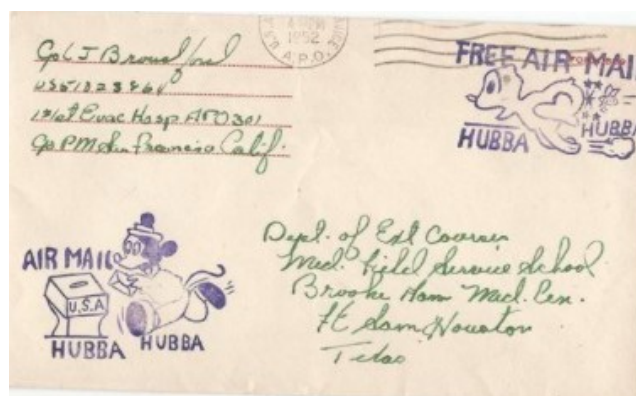 1952
A.P.O.
Cpl J
US51023864
121st Evac Hosp APO 301
℅ PM San Francisco Calif.
FREE AIR MAIL
HUBBA
HUBBA
AIR MAIL
U.S.A
HUBBA
HUBBA
Dept. of Ext Courses
Med. Field Service School
Brooke Med. Cen.
Ft Sam Houston
Texas